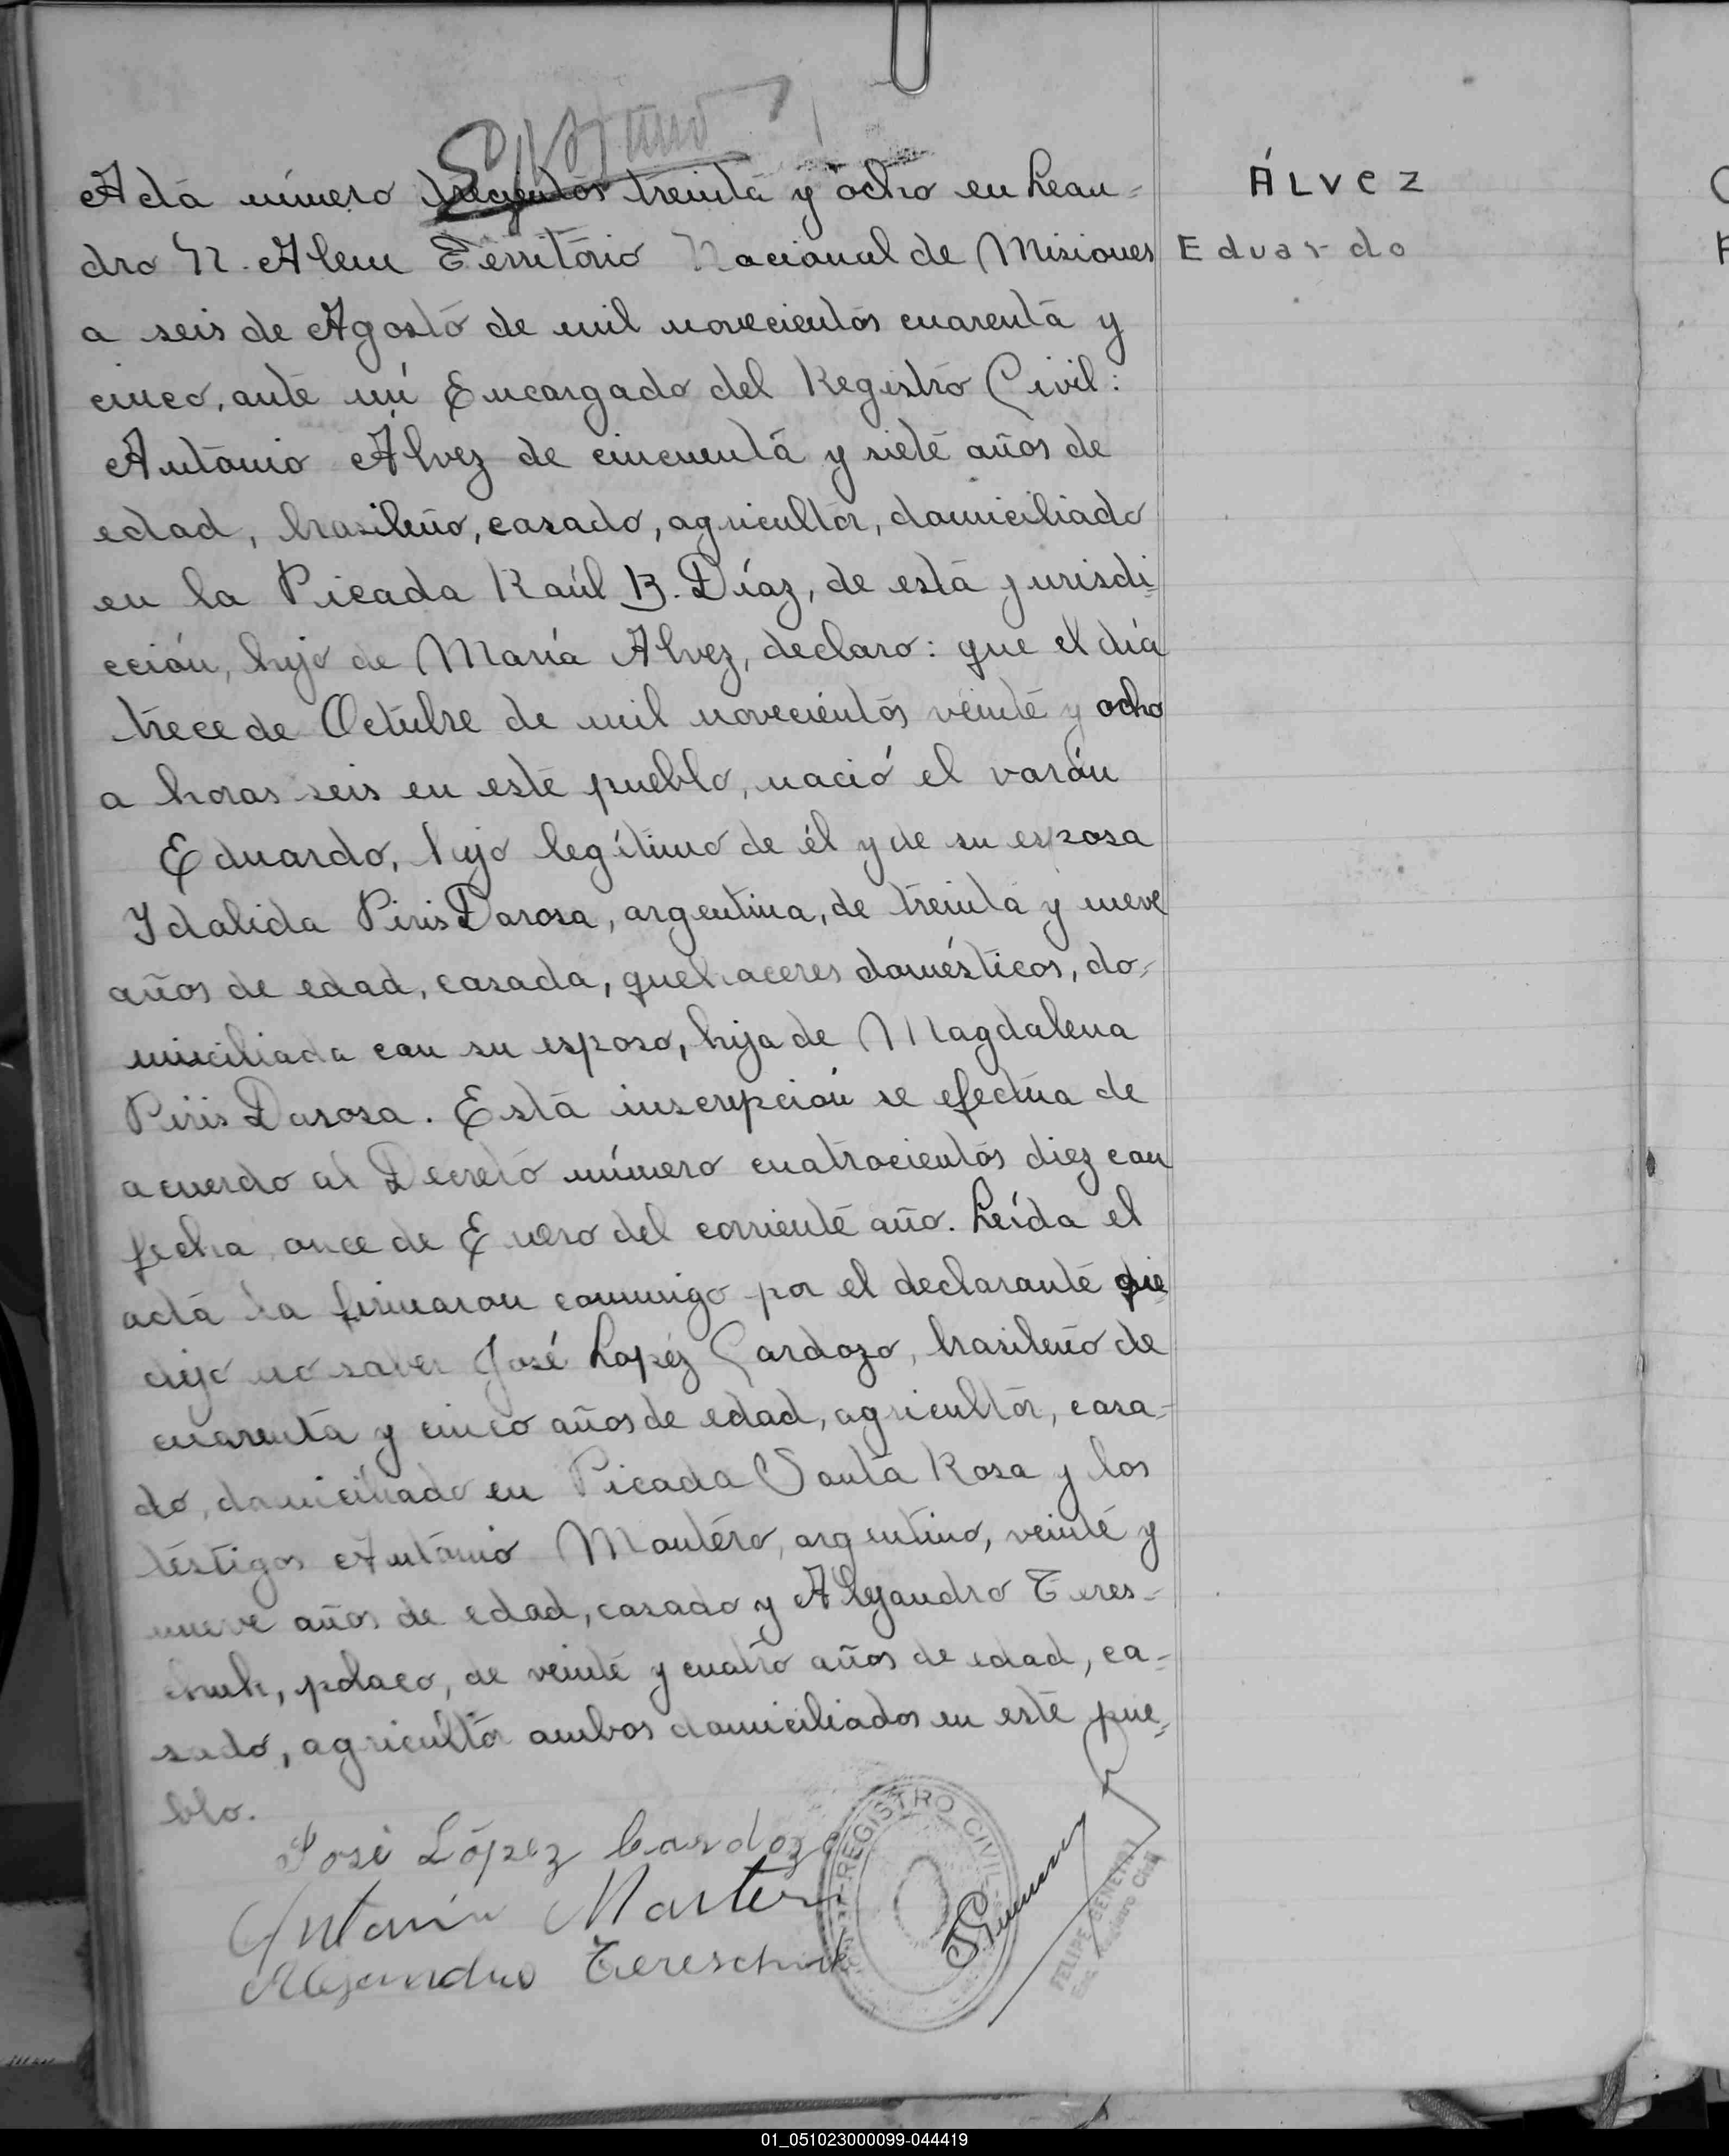 Acta número trecientos treinta y ocho en Lean=
dro N. Alem Território Nacional de Misiones
a seis de Agosto de mil novecientos cuarenta y
cinco, ante mí Encargado del Registro Civil:
Antonio Álvez de cincuenta y siete años de
edad, brasileño, casado, agricultor, domiciliado
en la Picada Raúl B. Díaz, de esta jurisdi=
cción, hijo de María Alvez, declaro: que el día
trece de Octubre de mil novecientos veinte y ocho
a horas seis en este pueblo, nació el varón
Eduardo, hijo legítimo de él y de su esposa
Idalida Piris Darosa, argentina, de treinta y nueve
años de edad, casada, quehaceres domésticos, do=
miciliada con su esposo, hija de Magdalena
Piris Darosa. Esta inscripción se efectúa de
acuerdo al Decreto número cuatrocientos diez con
fecha once de Enero del corriente año. Leída el
acta la firmaron conmigo por el declarante que
dijo no saber José Lopéz Cardozo, brasileño de
cuarenta y cinco años de edad, agricultor, casa=
do, domiciliado en Picada Santa Rosa y los
testigos Antonio Montero, argentino, veinte y
nueve años de edad, casado y Alejandro Teres=
chuk, polaco, de veinte y cuatro años de edad, ca=
sado, agricultor ambos domiciliados en este pue=
blo.
José López Cardozo
Antonio
Alejandro Tereschuk
REGISTRO CIVIL
FELIPE
Registro Civil
ÁLVEZ
Eduardo
01_051023000099-044419